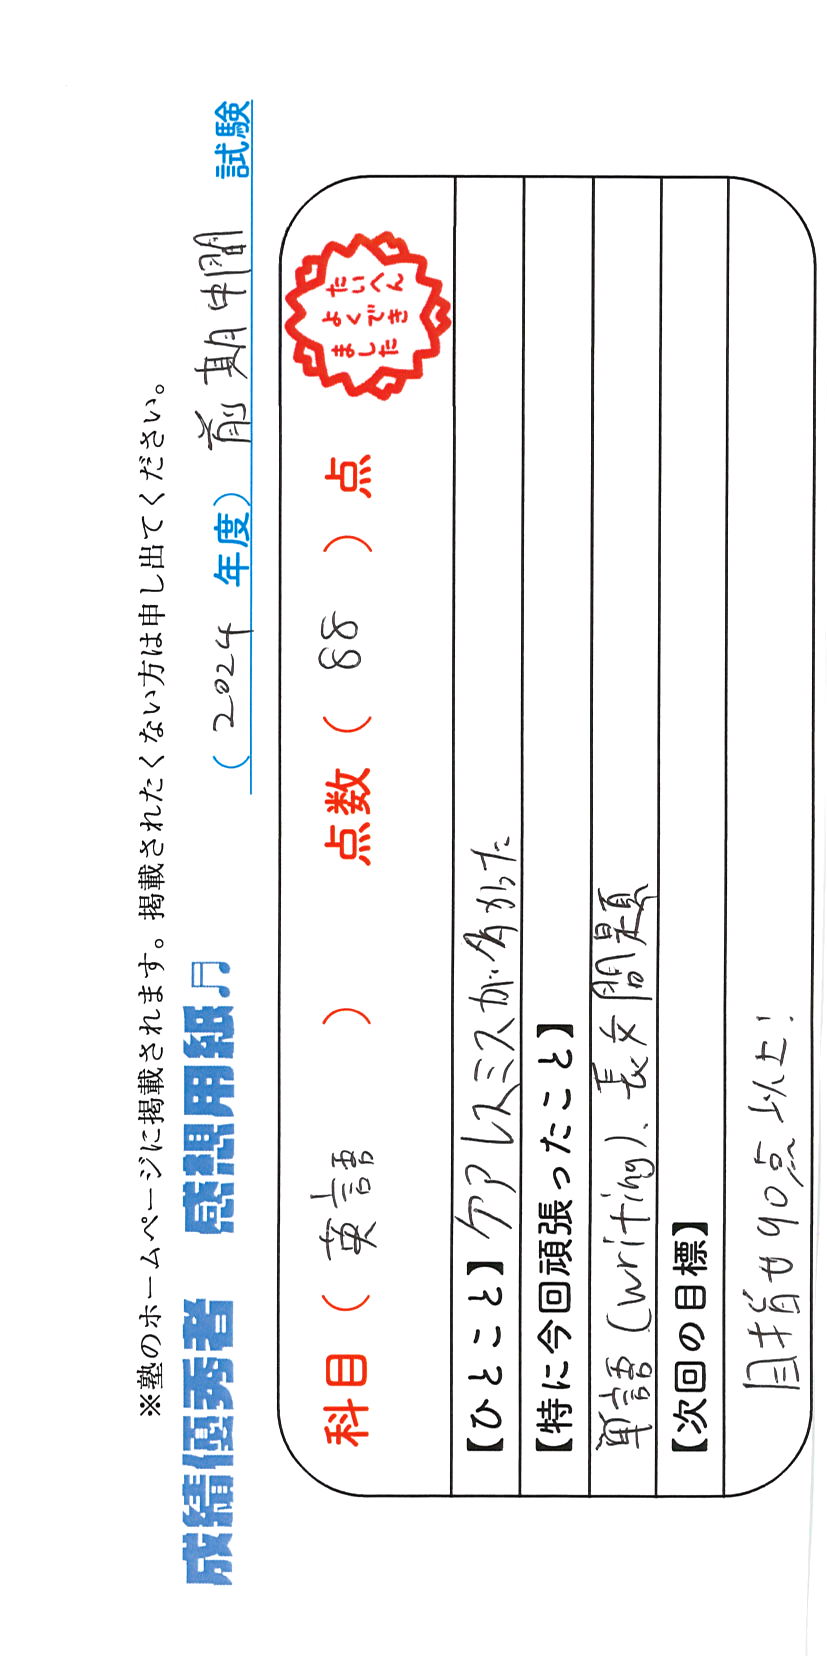 ※塾のホームページに掲載されます。掲載されたくない方は申し出てください。
成績優秀者 感想用紙♬
（2024年度）前期中間 試験
科目（英語） 点数（88）点
たいへん
よくでき
ました
【ひとこと】ケアレスミスが多かった
【特に今回頑張ったこと】
単語(writing)、長文問題
【次回の目標】
目指せ90点以上!